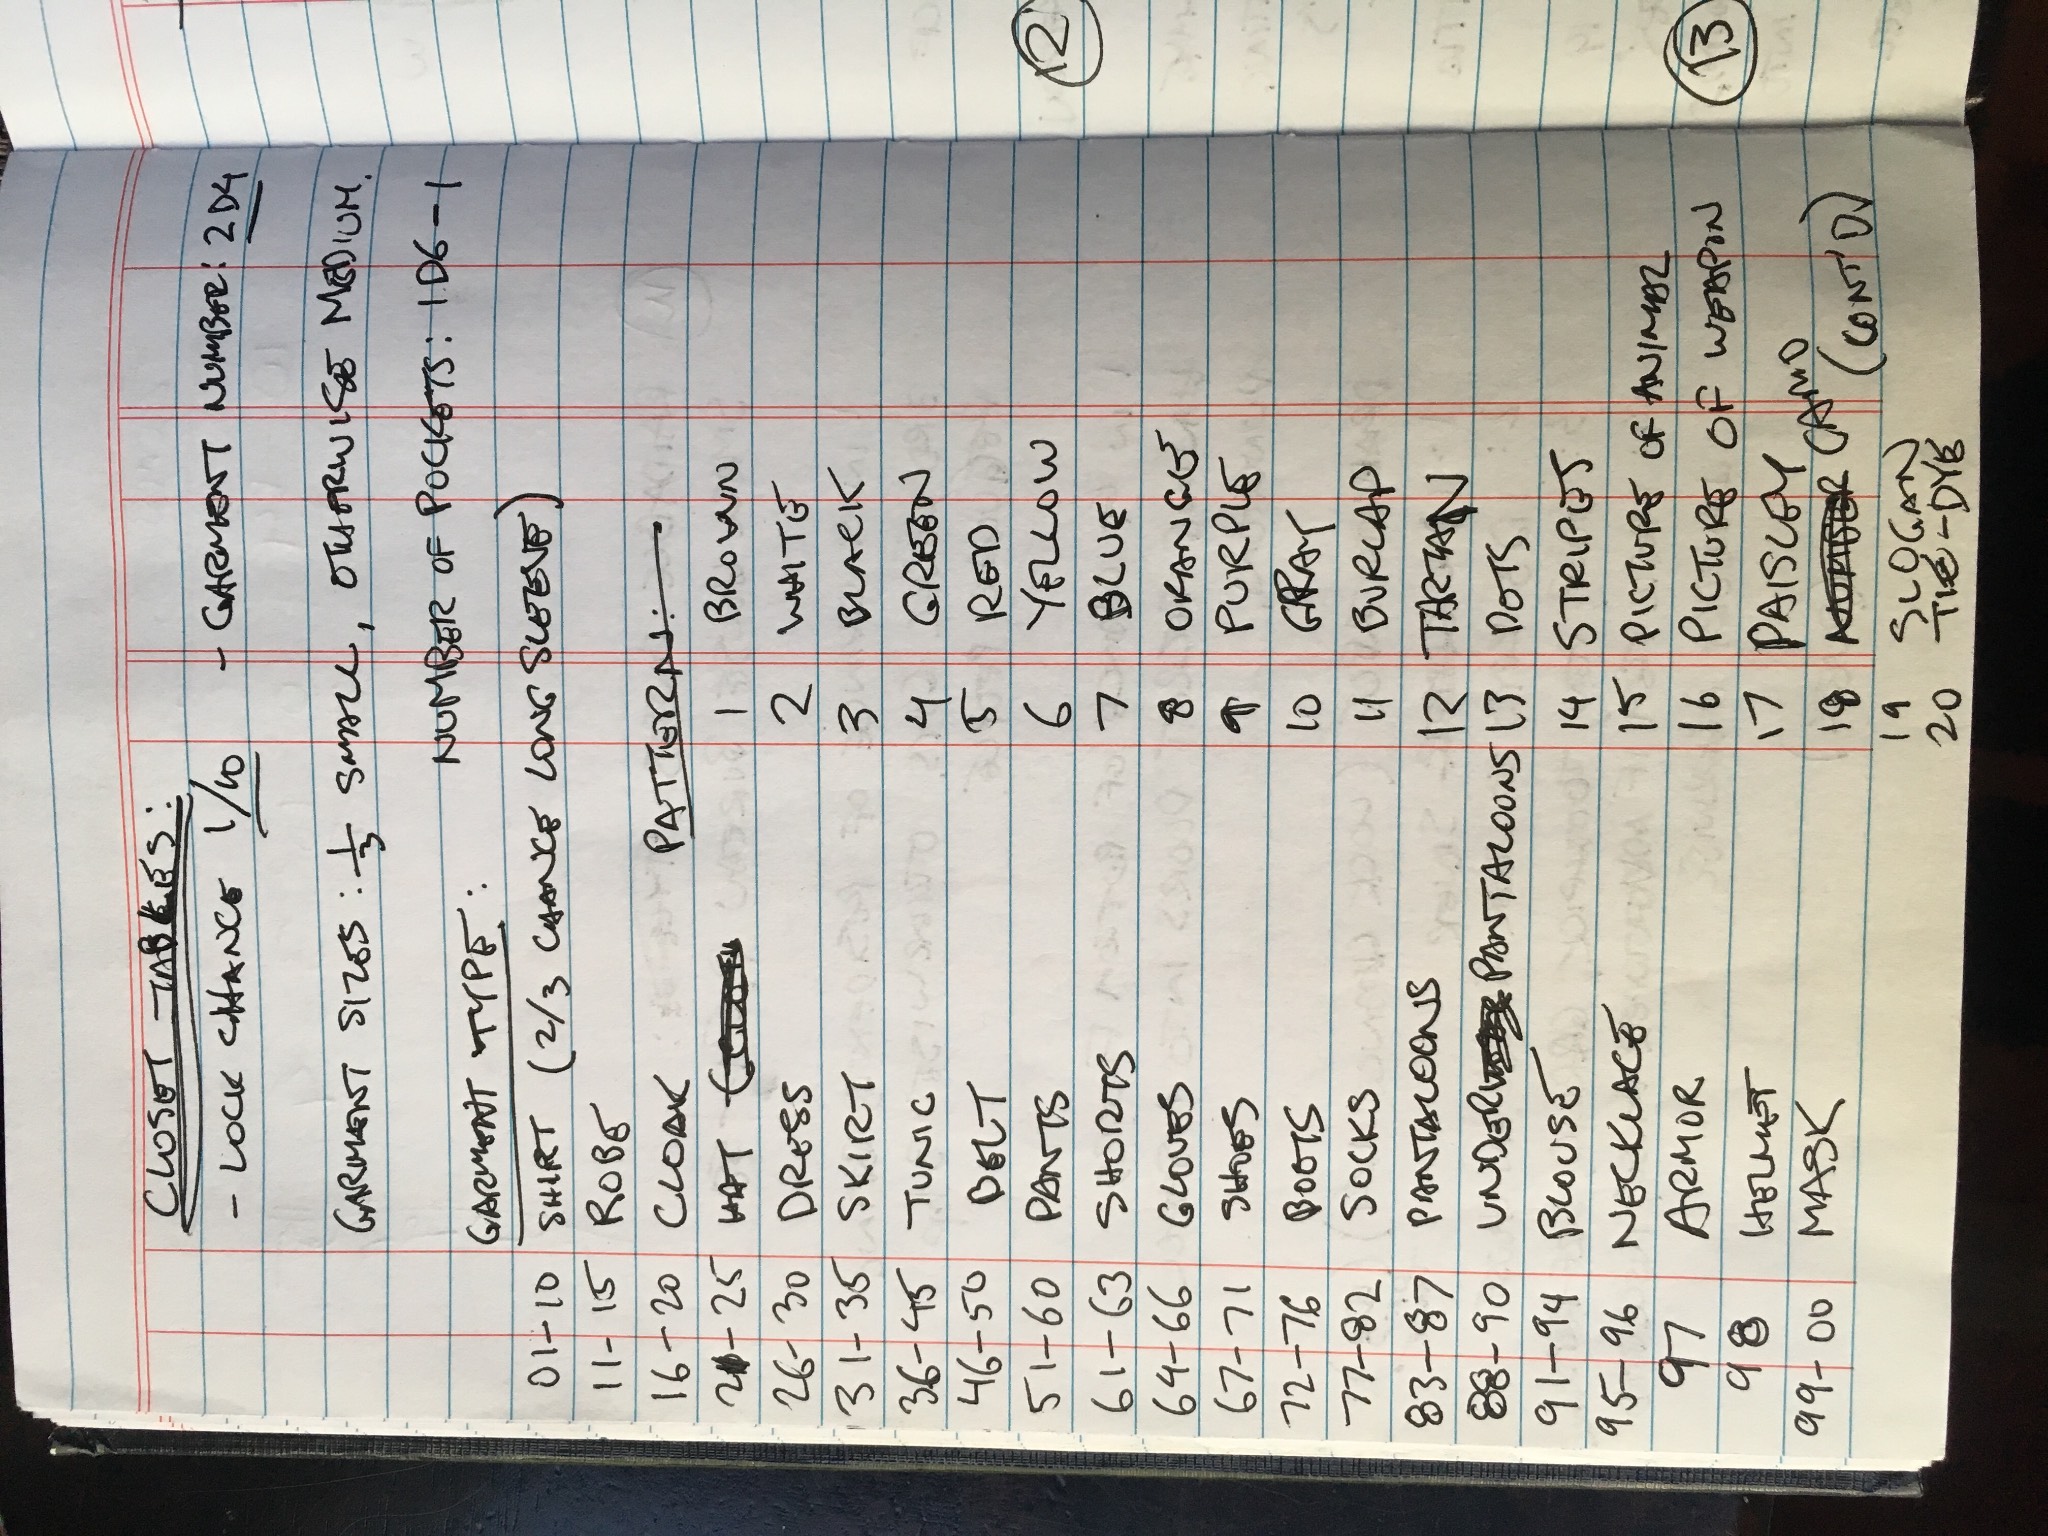 CLOSET TABLES:
- LOCK CHANCE 1/10 - GARMENT NUMBER: 2D4
GARMENT SIZES: 1/3 SMALL, OTHERWISE MEDIUM.
NUMBER OF POCKETS: 1D6-1
GARMENT TYPE:
01-10 SHIRT (2/3 CHANCE LONG SLEEVE)
11-15 ROBE
16-20 CLOAK
21-25 HAT
26-30 DRESS
31-35 SKIRT
36-45 TUNIC
46-50 BELT
51-60 PANTS
61-63 SHORTS
64-66 GLOVES
67-71 SHOES
72-76 BOOTS
77-82 SOCKS
83-87 PANTALOONS
88-90 UNDERPANTALOONS
91-94 BLOUSE
95-96 NECKLACE
97 ARMOR
98 HELMET
99-00 MASK
PATTERN:
1 BROWN
2 WHITE
3 BLACK
4 GREEN
5 RED
6 YELLOW
7 BLUE
8 ORANGE
9 PURPLE
10 GRAY
11 BURLAP
12 TARTAN
13 DOTS
14 STRIPES
15 PICTURE OF ANIMAL
16 PICTURE OF WEAPON
17 PAISLEY
18 CAMO
19 SLOGAN
20 TIE-DYE
(CONT'D)
12
13